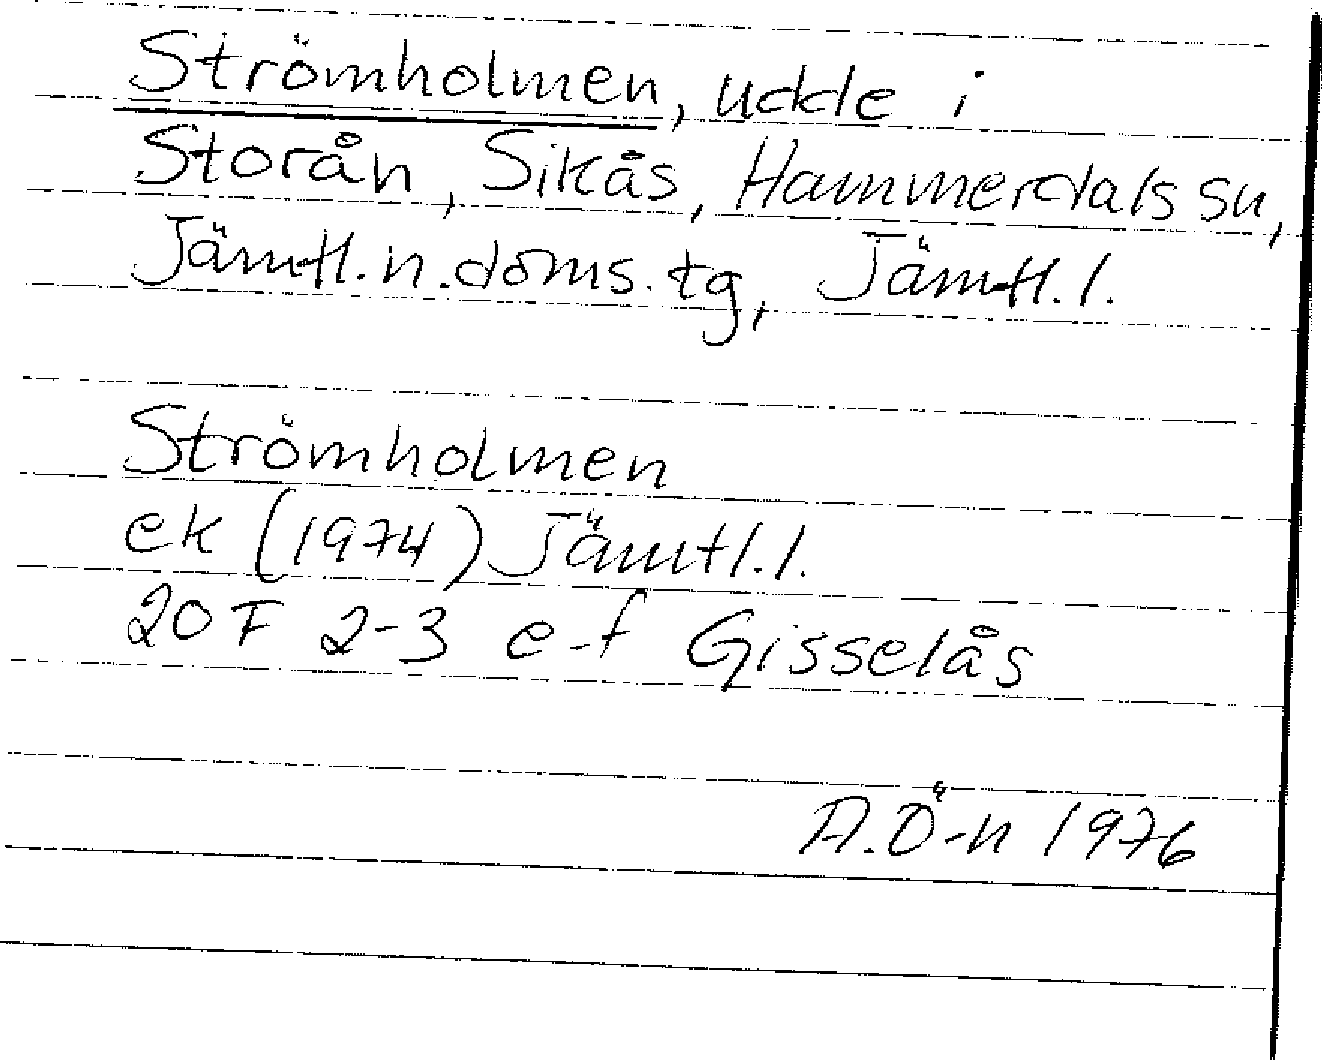 Strömholmen, udde i
Storån, Sikås, Hammerdals sn,
Jämtl.n.doms.tg, Jämtl.l.
Strömholmen
ek (1974) Jämtl.l.
20F 2-3 e-f Gisselås
A.Ö-n 1976